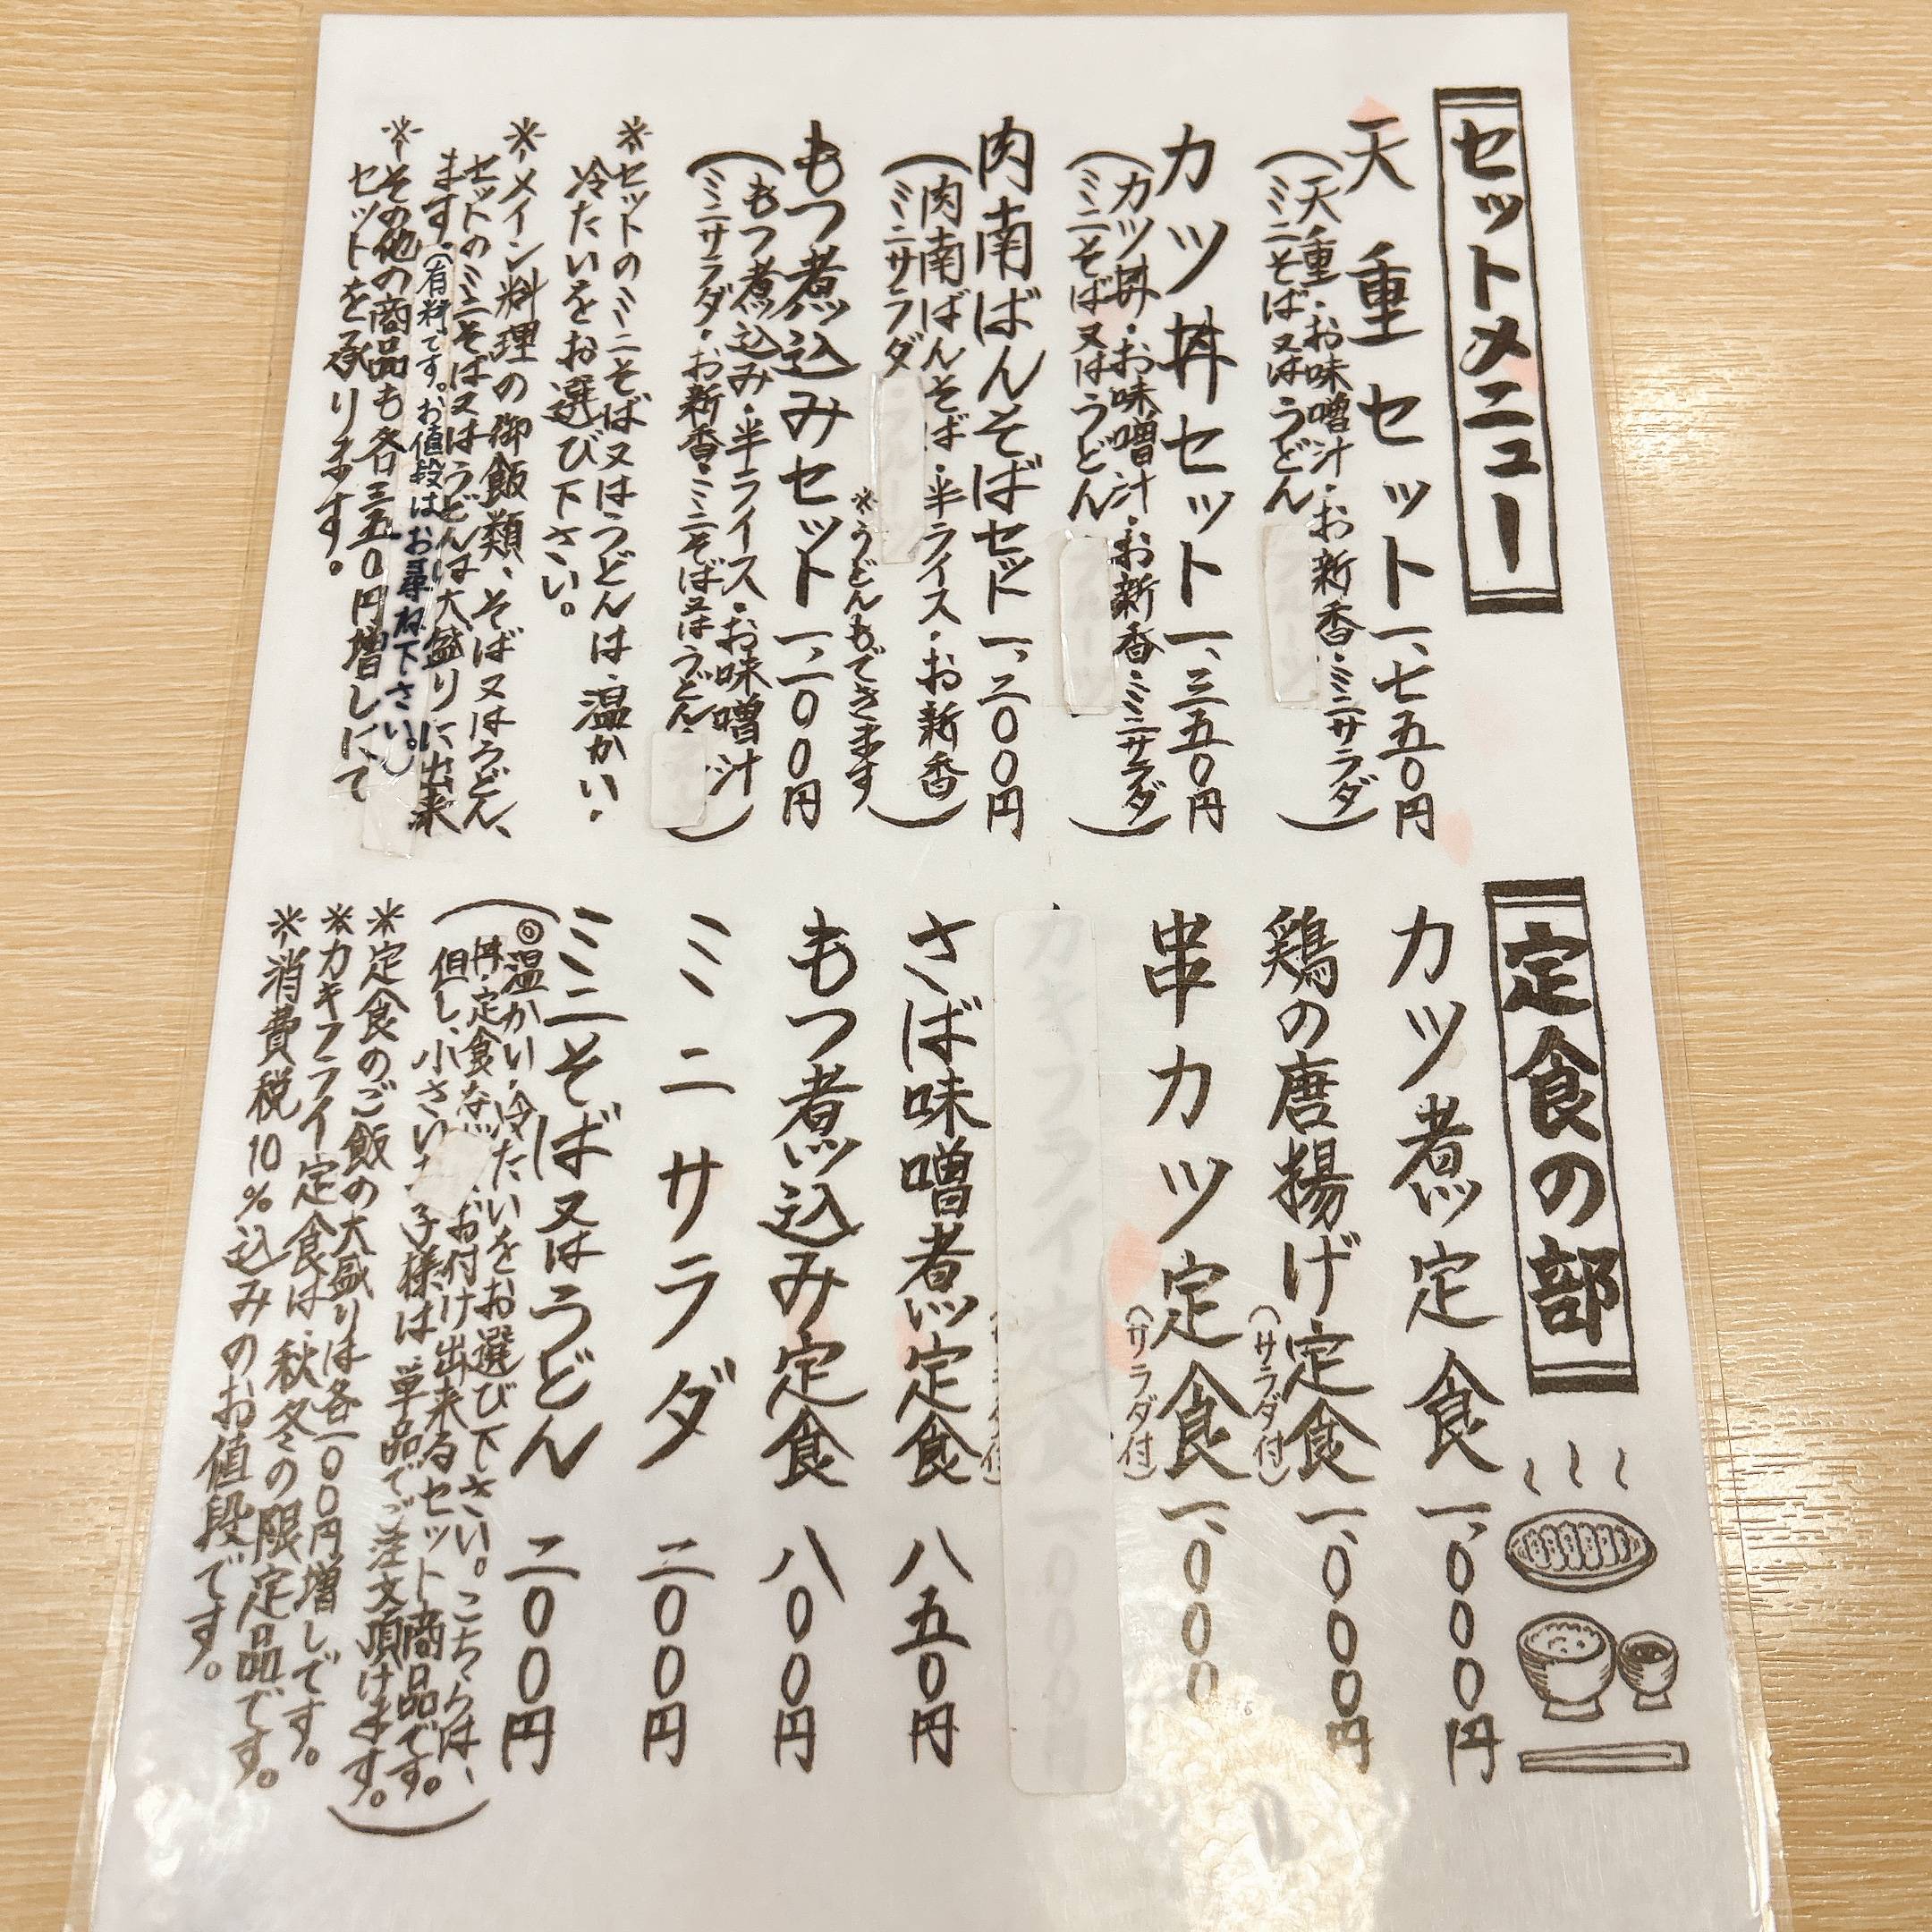 セットメニュー
天重セット 一、七五〇円
(天重・お味噌汁・お新香・ミニサラダ
ミニそば又はうどん)
カツ丼セット 一、三五〇円
(カツ丼・お味噌汁・お新香・ミニサラダ
ミニそば又はうどん)
肉南ばんそばセット 一、二〇〇円
(肉南ばんそば・半ライス・お新香
ミニサラダ)
※うどんもできます
もつ煮込みセット 一、一〇〇円
(もつ煮込み・半ライス・お味噌汁
ミニサラダ・お新香・ミニそば又はうどん)
※セットのミニそば又はうどんは、温かい・
冷たいをお選び下さい。
※メイン料理の御飯類、そば又はうどん、
セットのミニそば又はうどんは大盛りに出来
ます(有料です。お値段はお尋ね下さい。)
※その他の商品も各三五〇円増しにて
セットを承ります。
定食の部
カツ煮定食 一、〇〇〇円
鶏の唐揚げ定食 一、〇〇〇円
(サラダ付)
串カツ定食 一、〇〇〇
(サラダ付)
カキフライ定食 一、〇〇〇円
さば味噌煮定食 八五〇円
もつ煮込み定食 八〇〇円
ミニサラダ 二〇〇円
ミニそば又はうどん 二〇〇円
(◎温かい・冷たいをお選び下さい。こちらは、
丼・定食な お付け出来るセット商品です。
但し、小さい 子様は単品でご注文頂けます。)
※定食のご飯の大盛りは各一〇〇円増しです。
※カキフライ定食は、秋冬の限定品です。
※消費税10%込みのお値段です。